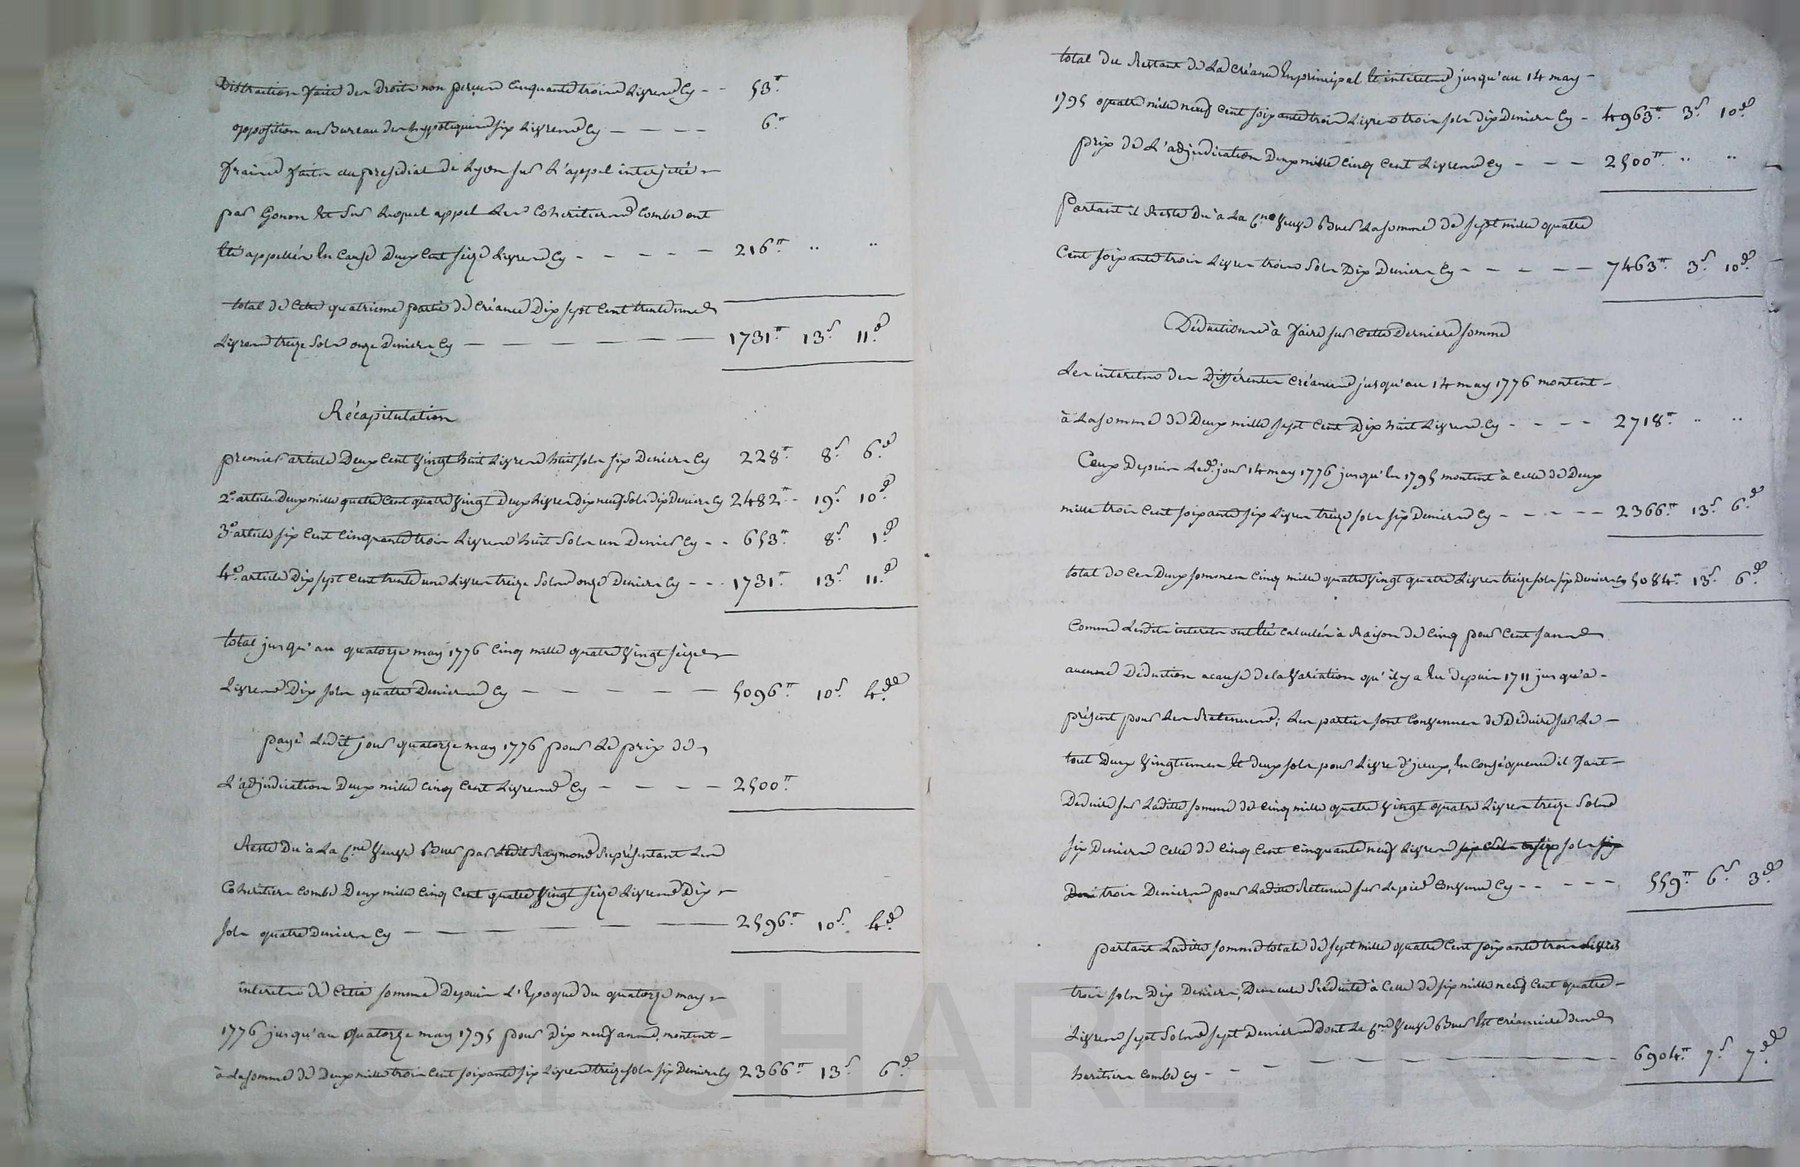 Distraction faite des Droits non perçus Cinquante trois Livres Cy - - 53.tt
opposition au Bureau des hypoteques six Livres Cy — — — — 6.tt
fraix faits au presidial de Lyon sur L'appel interjetté
par Gonon et sur Lequel appel Les Coheritiers Combe ont
été appellés en Cause Deux Cent seize Livres Cy - - - - - 216.tt " "
total de Cette quatrieme partie de Créance Dix sept Cent trente une
Livres treize Sols onze Deniers Cy — — — — — — 1731.tt 13.s 11.d
Récapitulation
premier article Deux Cent vingt huit Livres huit sols six Deniers Cy 228.tt 8.s 6.d
2.e article Deux mille quatre Cent quatre vingt Deux Livres Dix neuf Sols Dix Deniers Cy 2482.tt - 19.s 10.d
3.e article six Cent Cinquante trois Livres huit Sols un Denier Cy - - 653.tt 8.s 1.d
4.e article Dix sept Cent trente une Livres treize Sols onze Deniers Cy - - - 1731.tt 13.s 11.d
total jusqu'au quatorze may 1776 Cinq mille quatre vingt seize
Livres Dix sols quatre Deniers Cy — — — — — 5096.tt 10.s 4.d
payé Ledit jour quatorze may 1776 pour Le prix de
L'adjudication Deux mille Cinq Cent Livres Cy — — — — 2500.tt
Reste Du a La C.ne veuve Bues par Ledit Raymond Représentant Les
Coheritiers Combe Deux mille Cinq Cent quatre vingt seize Livres Dix
sols quatre Deniers Cy — — — — — — 2596.tt 10.s 4.d
interets de Cette somme Depuis L'Epoque du quatorze may
1776 jusqu'au quatorze may 1795 pour Dix neuf années, montent -
à La somme de Deux mille trois Cent soixante six Livres treize sols six Deniers Cy 2366.tt 13.s 6.d
total du Restant de La Créance En principal et interets jusqu'au 14 may -
1795 quatre mille neuf Cent soixante trois Livres trois sols dix Deniers Cy - 4963.tt 3.s 10.d
prix de L'adjudication Deux mille Cinq Cent Livres Cy - - - 2500.tt " "
Partant il Reste Du a La C.ne veuve Bues La somme de sept mille quatre
Cent soixante trois Livres trois Sols Dix Deniers Cy - - - - - 7463.tt 3.s 10.d
Déductions à faire sur Cette Derniere somme
Les interets des Différentes Créances jusqu'au 14 may 1776 montent -
à La somme de Deux mille sept Cent Dix huit Livres Cy - - - - 2718.tt " "
Ceux Depuis Led. jour 14 may 1776 jusqu'en 1795 montent à Celle de Deux
mille trois Cent soixante six Livres treize sols six Deniers Cy - - - - - 2366.tt 13.s 6.d
total de Ces Deux sommes Cinq mille quatre vingt quatre Livres treize sols six Deniers Cy 5084.tt 13.s 6.d
Comme Lesdits interets ont été Calculés à Raison de Cinq pour Cent sans
aucune Déduction a cause de la variation qu'il y a Eu depuis 1711 jusqu'a -
présent pour Les Retenues; Les parties sont Convenues de Déduire sur Le -
tout Deux vingtiemes et deux sols pour Livre d'jceux, En Conséquence il faut -
Déduire sur Ladite somme de Cinq mille quatre vingt quatre Livres treize Sols
six Deniers Celle de Cinq Cent Cinquante neuf Livres six sols
trois Deniers pour Ladite Retenue sur Le pied Convenu Cy - - - - - 559.tt 6.s 3.d
partant Ladite somme totale de sept mille quatre Cent soixante trois Livres
trois sols Dix Deniers, Demeure Réduite à Celle de six mille neuf Cent quatre -
Livres sept Sols sept Deniers Dont La C.ne veuve Bues Est Créanciere des
heritiers Combe Cy - - - — — — 6904.tt 7.s 7.d
Pascal CHAREYRON